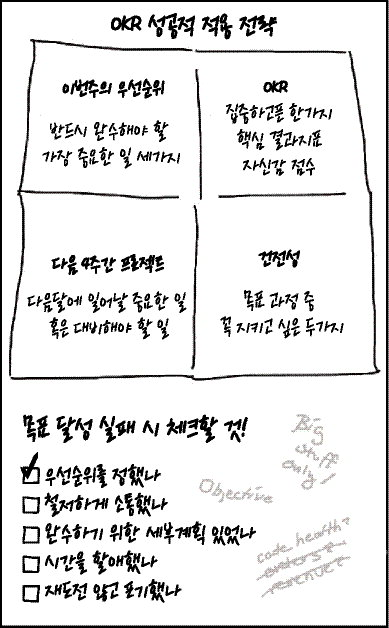 OKR 성공적 적용 전략
이번주의 우선순위
반드시 완수해야 할
가장 중요한 일 세가지
OKR
집중하고픈 한가지
핵심 결과지표
자신감 점수
다음 4주간 프로젝트
다음달에 일어날 중요한 일
혹은 대비해야 할 일
건전성
목표 과정 중
꼭 지키고 싶은 두가지
목표 달성 실패 시 체크할 것!
우선순위를 정했나
철저하게 소통했나
완수하기 위한 세부계획 있었나
시간을 할애했나
재도전 않고 포기했나
Big
stuff
only
Objective
code health?